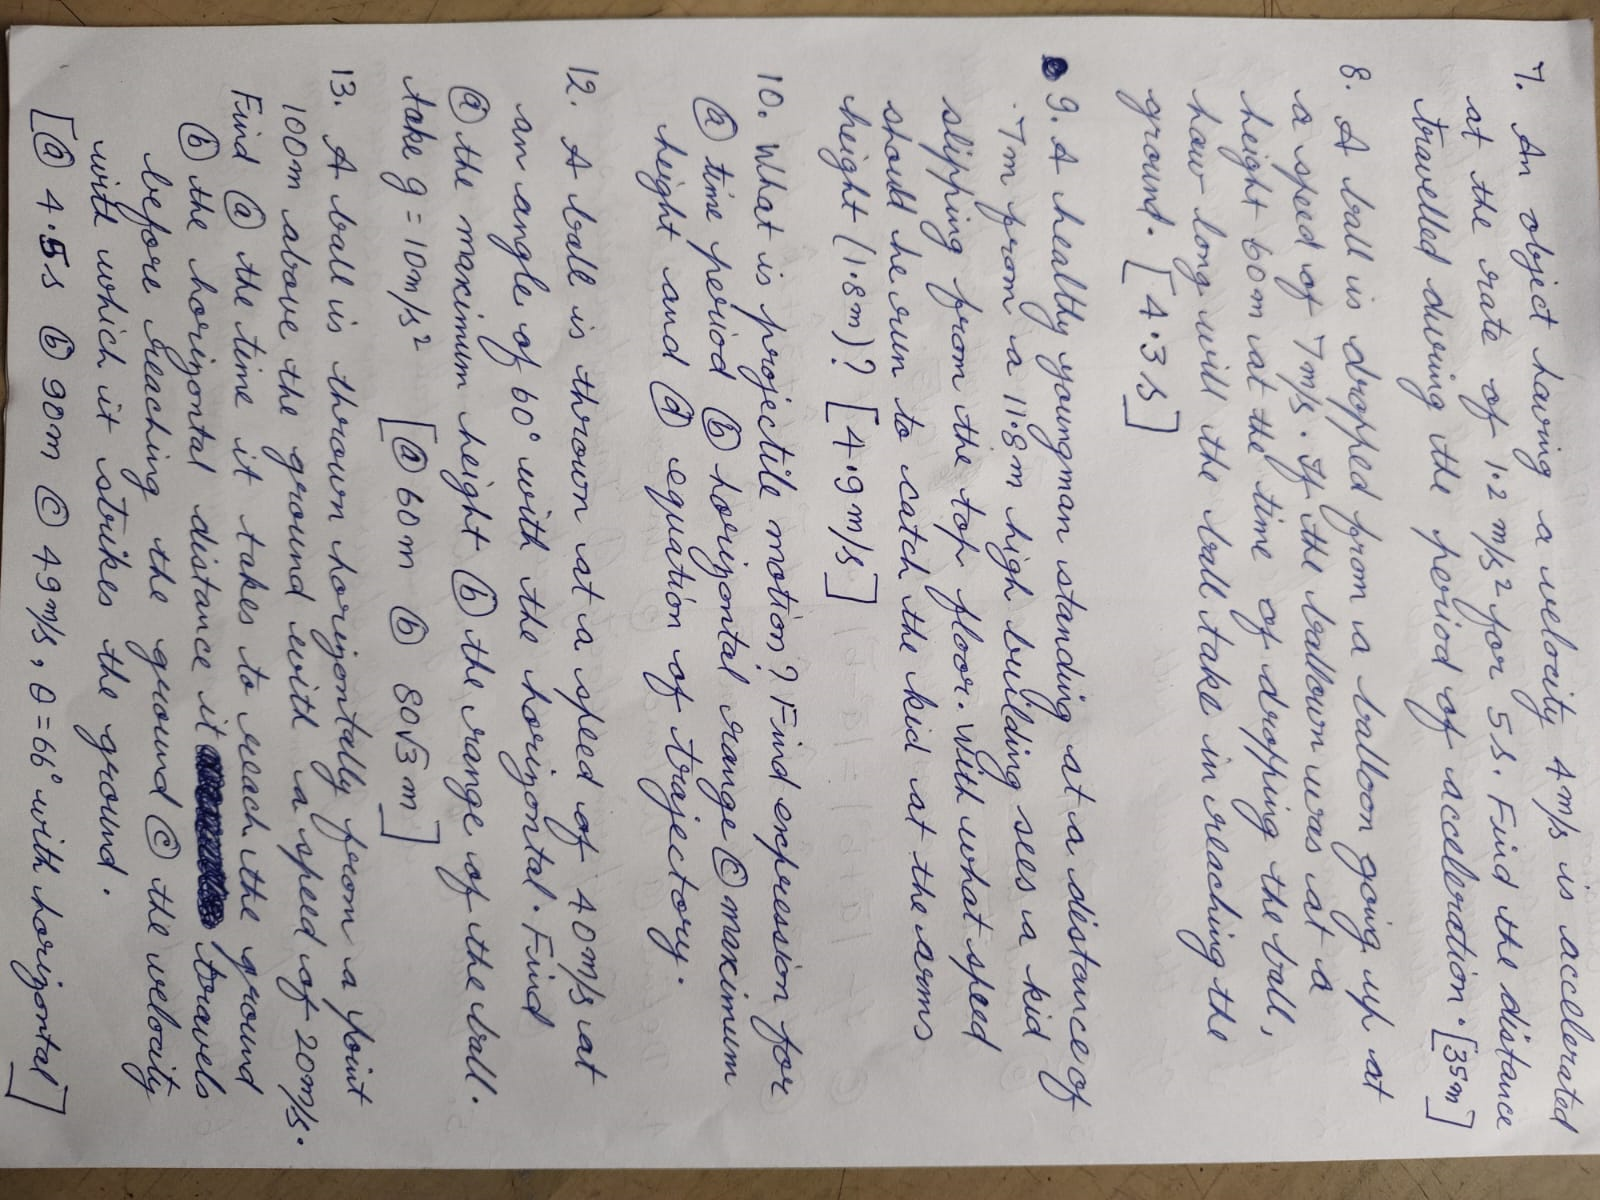 7. An object having a velocity 4 m/s is accelerated
at the rate of 1.2 m/s² for 5 s. Find the distance
travelled during the period of acceleration. [35m]
8. A ball is dropped from a balloon going up at
a speed of 7 m/s. If the balloon was at a
height 60 m at the time of dropping the ball,
how long will the ball take in reaching the
ground. [4.3 s]
9. A healthy youngman standing at a distance of
7m from a 11.8 m high building sees a kid
slipping from the top floor. With what speed
should he run to catch the kid at the arms
height (1.8m)? [4.9 m/s]
10. What is projectile motion? Find expression for
ⓐ time period ⓑ horizontal range ⓒ maximum
height and ⓓ equation of trajectory.
12. A ball is thrown at a speed of 40 m/s at
an angle of 60° with the horizontal. Find
ⓐ the maximum height ⓑ the range of the ball.
take g = 10 m/s² [ⓐ 60 m ⓑ 80√3 m]
13. A ball is thrown horizontally from a point
100m above the ground with a speed of 20m/s.
Find ⓐ the time it takes to reach the ground
ⓑ the horizontal distance it travels
before reaching the ground ⓒ the velocity
with which it strikes the ground.
[ⓐ 4.5 s ⓑ 90m ⓒ 49 m/s, θ = 66° with horizontal]